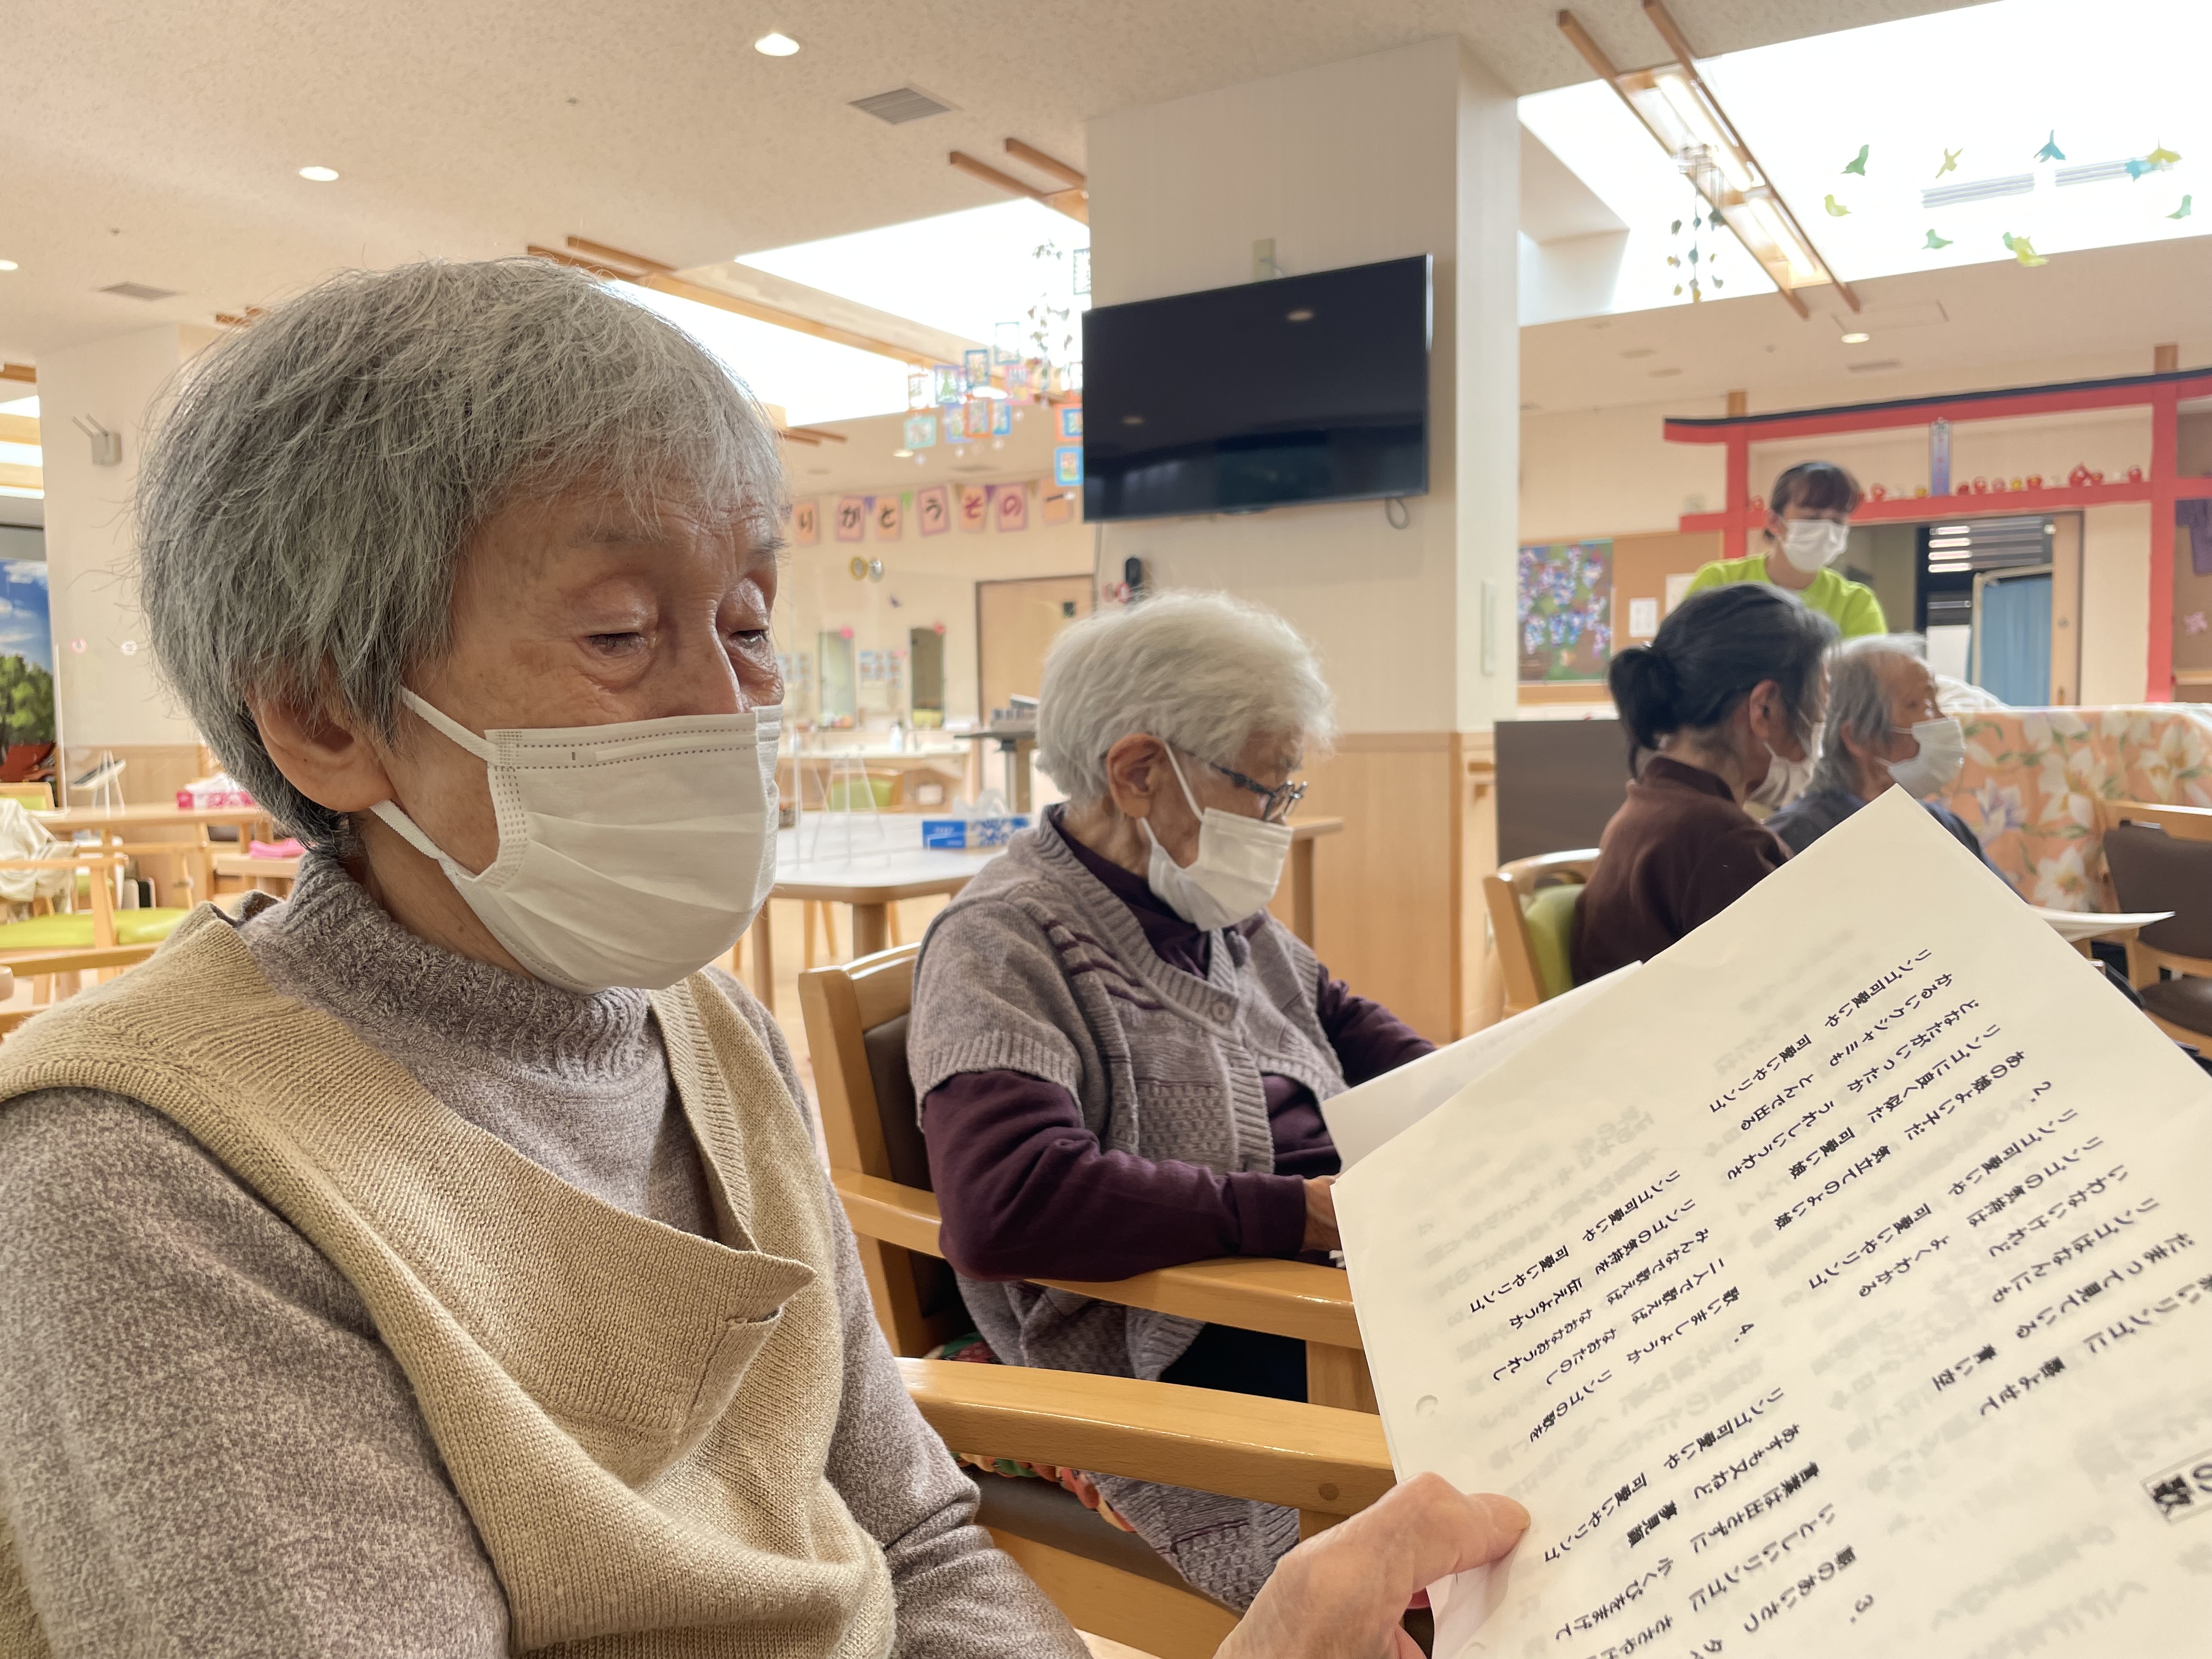 りがとうその
の歌
いリンゴに 唇よせて
だまって見ている 青い空
リンゴはなんにも
いわないけれど
リンゴの気持は よくわかる
リンゴ可愛いや 可愛いやリンゴ
2.
あの娘よい子だ 気立てのよい娘
リンゴに良く似た 可愛い娘
どなたがいったか うれしいうわさ
かるいクシャミも とんで出る
リンゴ可愛いや 可愛いやリンゴ
3.
朝のあいさつ
いとしいリンゴに
言葉は出さずに 小くびをまげて
あすも又ねと 夢見顔
リンゴ可愛いや 可愛いやリンゴ
4.
歌いましょうか リンゴの歌を
二人で歌えば なおたのし
みんなで歌えば なおなおうれし
リンゴの気持を 伝えようか
リンゴ可愛いや 可愛いやリンゴ